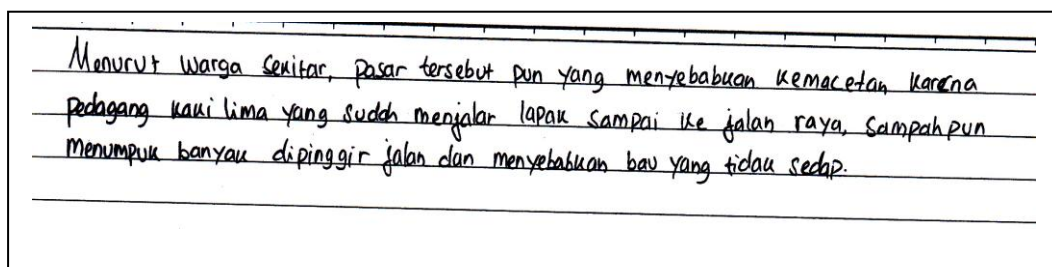 Menurut warga sekitar, pasar tersebut pun yang menyebabkan kemacetan karena
pedagang kaki lima yang sudah menjalar lapak sampai ke jalan raya, sampah pun
menumpuk banyak dipinggir jalan dan menyebabkan bau yang tidak sedap.